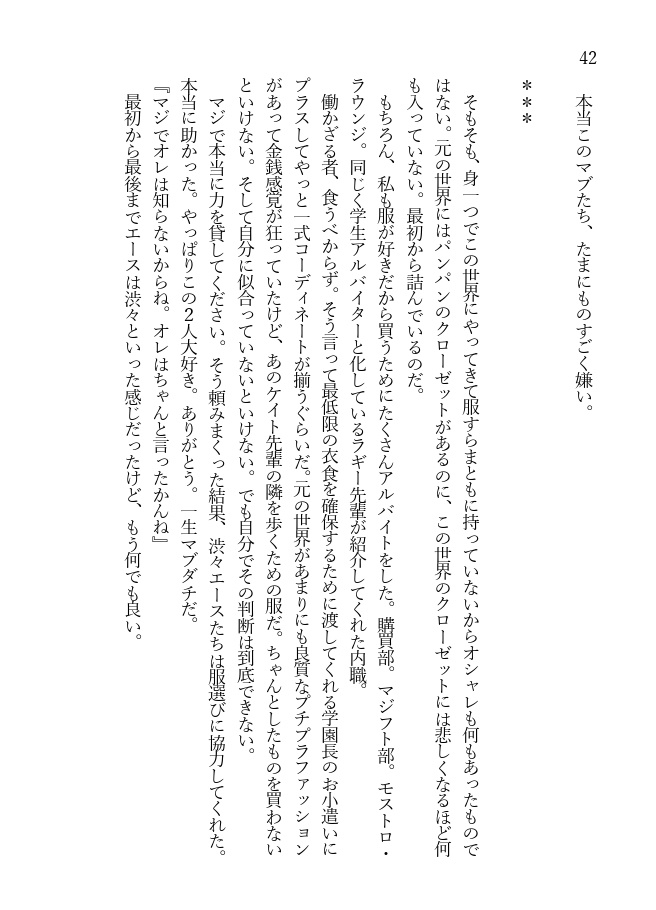 42
本当このマブたち、たまにものすごく嫌い。
***
そもそも、身一つでこの世界にやってきて服すらまともに持っていないからオシャレも何もあったもので
はない。元の世界にはパンパンのクローゼットがあるのに、この世界のクローゼットには悲しくなるほど何
も入っていない。最初から詰んでいるのだ。
もちろん、私も服が好きだから買うためにたくさんアルバイトをした。購買部。マジフト部。モストロ・
ラウンジ。同じく学生アルバイターと化しているラギー先輩が紹介してくれた内職。
働かざる者、食うべからず。そう言って最低限の衣食を確保するために渡してくれる学園長のお小遣いに
プラスしてやっと一式コーディネートが揃うぐらいだ。元の世界があまりにも良質なプチプラファッション
があって金銭感覚が狂っていたけど、あのケイト先輩の隣を歩くための服だ。ちゃんとしたものを買わない
といけない。そして自分に似合っていないといけない。でも自分でその判断は到底できない。
マジで本当に力を貸してください。そう頼みまくった結果、渋々エースたちは服選びに協力してくれた。
本当に助かった。やっぱりこの2人大好き。ありがとう。一生マブダチだ。
『マジでオレは知らないからね。オレはちゃんと言ったかんね』
最初から最後までエースは渋々といった感じだったけど、もう何でも良い。